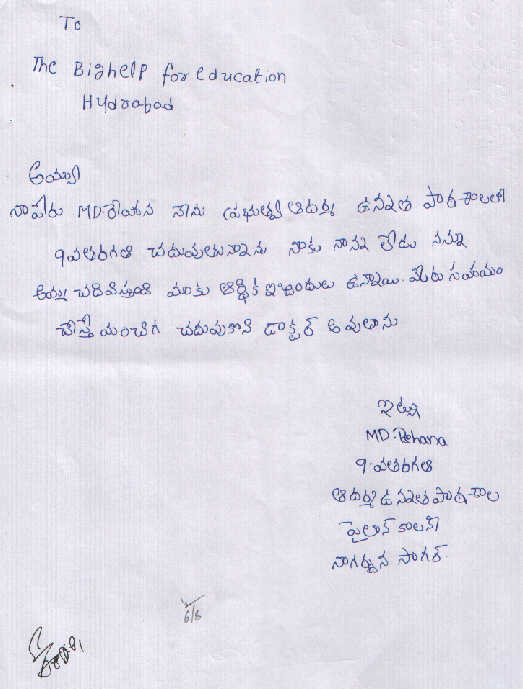 To
The Bighelp for education
Hydrabad
అయ్యా
నాపేరు MD రేహన నేను ప్రభుత్వ ఆదర్శ ఉన్నత పాఠశాలలో
9వతరగతి చదువుతున్నాను నాకు నాన్న లేడు నన్ను
అమ్మ చదివిస్తుంది మాకు ఆర్థిక ఇబ్బందులు ఉన్నాయి. మీరు సహాయం
చేస్తే మంచిగ చదువుకొని డాక్టర్ అవుతాను
ఇట్లు
MD. Rehana
9వతరగతి
ఆదర్శ ఉన్నత పాఠశాల
పైలాన్ కాలని
నాగర్జున సాగర్.
6/8